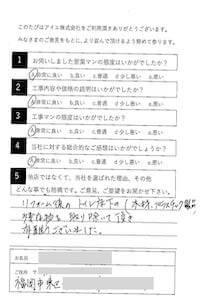 このたびはアイエ株式会社をご利用頂きありがとうございます。
みなさまのご意見をもとに、より皆んで頂けるよう努めて参ります。
1 お伺いしました営業マンの態度はいかがでしたか?
a.非常に良い b.良い c.普通 d.少し悪い e.悪い
2 工事内容や価格の説明はいかがでしたか?
a.非常に良い b.良い c.普通 d.少し悪い e.悪い
3 工事マンの態度はいかがでしたか?
a.非常に良い b.良い c.普通 d.少し悪い e.悪い
4 当社に対する総合的なご感想はいかがでしょうか?
a.非常に良い b.良い c.普通 d.少し悪い e.悪い
5 他店ではなくて、当社を選ばれた理由、その他
どんな事でも結構です。ご意見、ご要望をお聞かせ下さい。
リフォーム後の トイレ床下の(木材、プラスチック製品)
残存物を 取り除いて頂き
有難うございました。
お名前
ご住所
福岡市東区